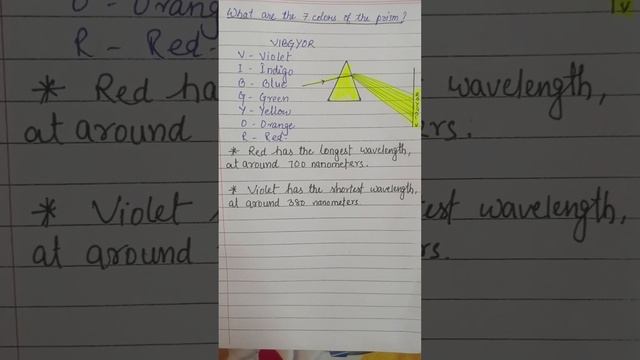 What are the 7 colors of the prism?
VIBGYOR
V - Violet
I - Indigo
B - Blue
G - Green
Y - Yellow
O - Orange
R - Red
* Red has the longest wavelength,
at around 700 nanometers.
* Violet has the shortest wavelength,
at around 380 nanometers.
O - Orange
R - Red-
* Red ha
wavelength,
at around
rs.
* Violet
est wavelength,
at around
rs.
V